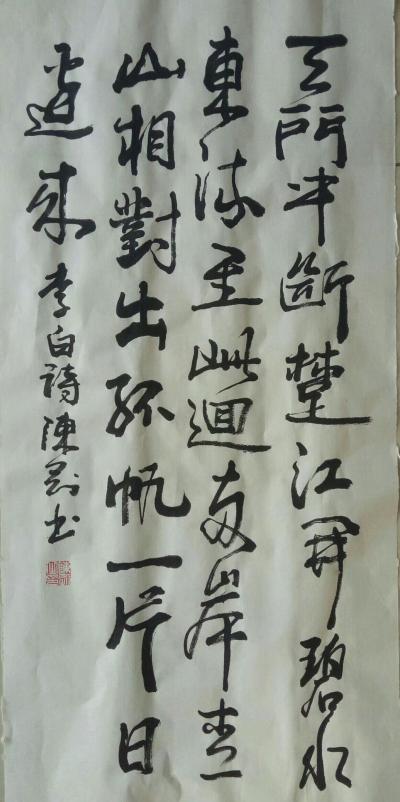 天門冲斷楚江開碧水
東流至此迴两岸青
山相對出孤帆一片日
邊来李白詩陳剛书